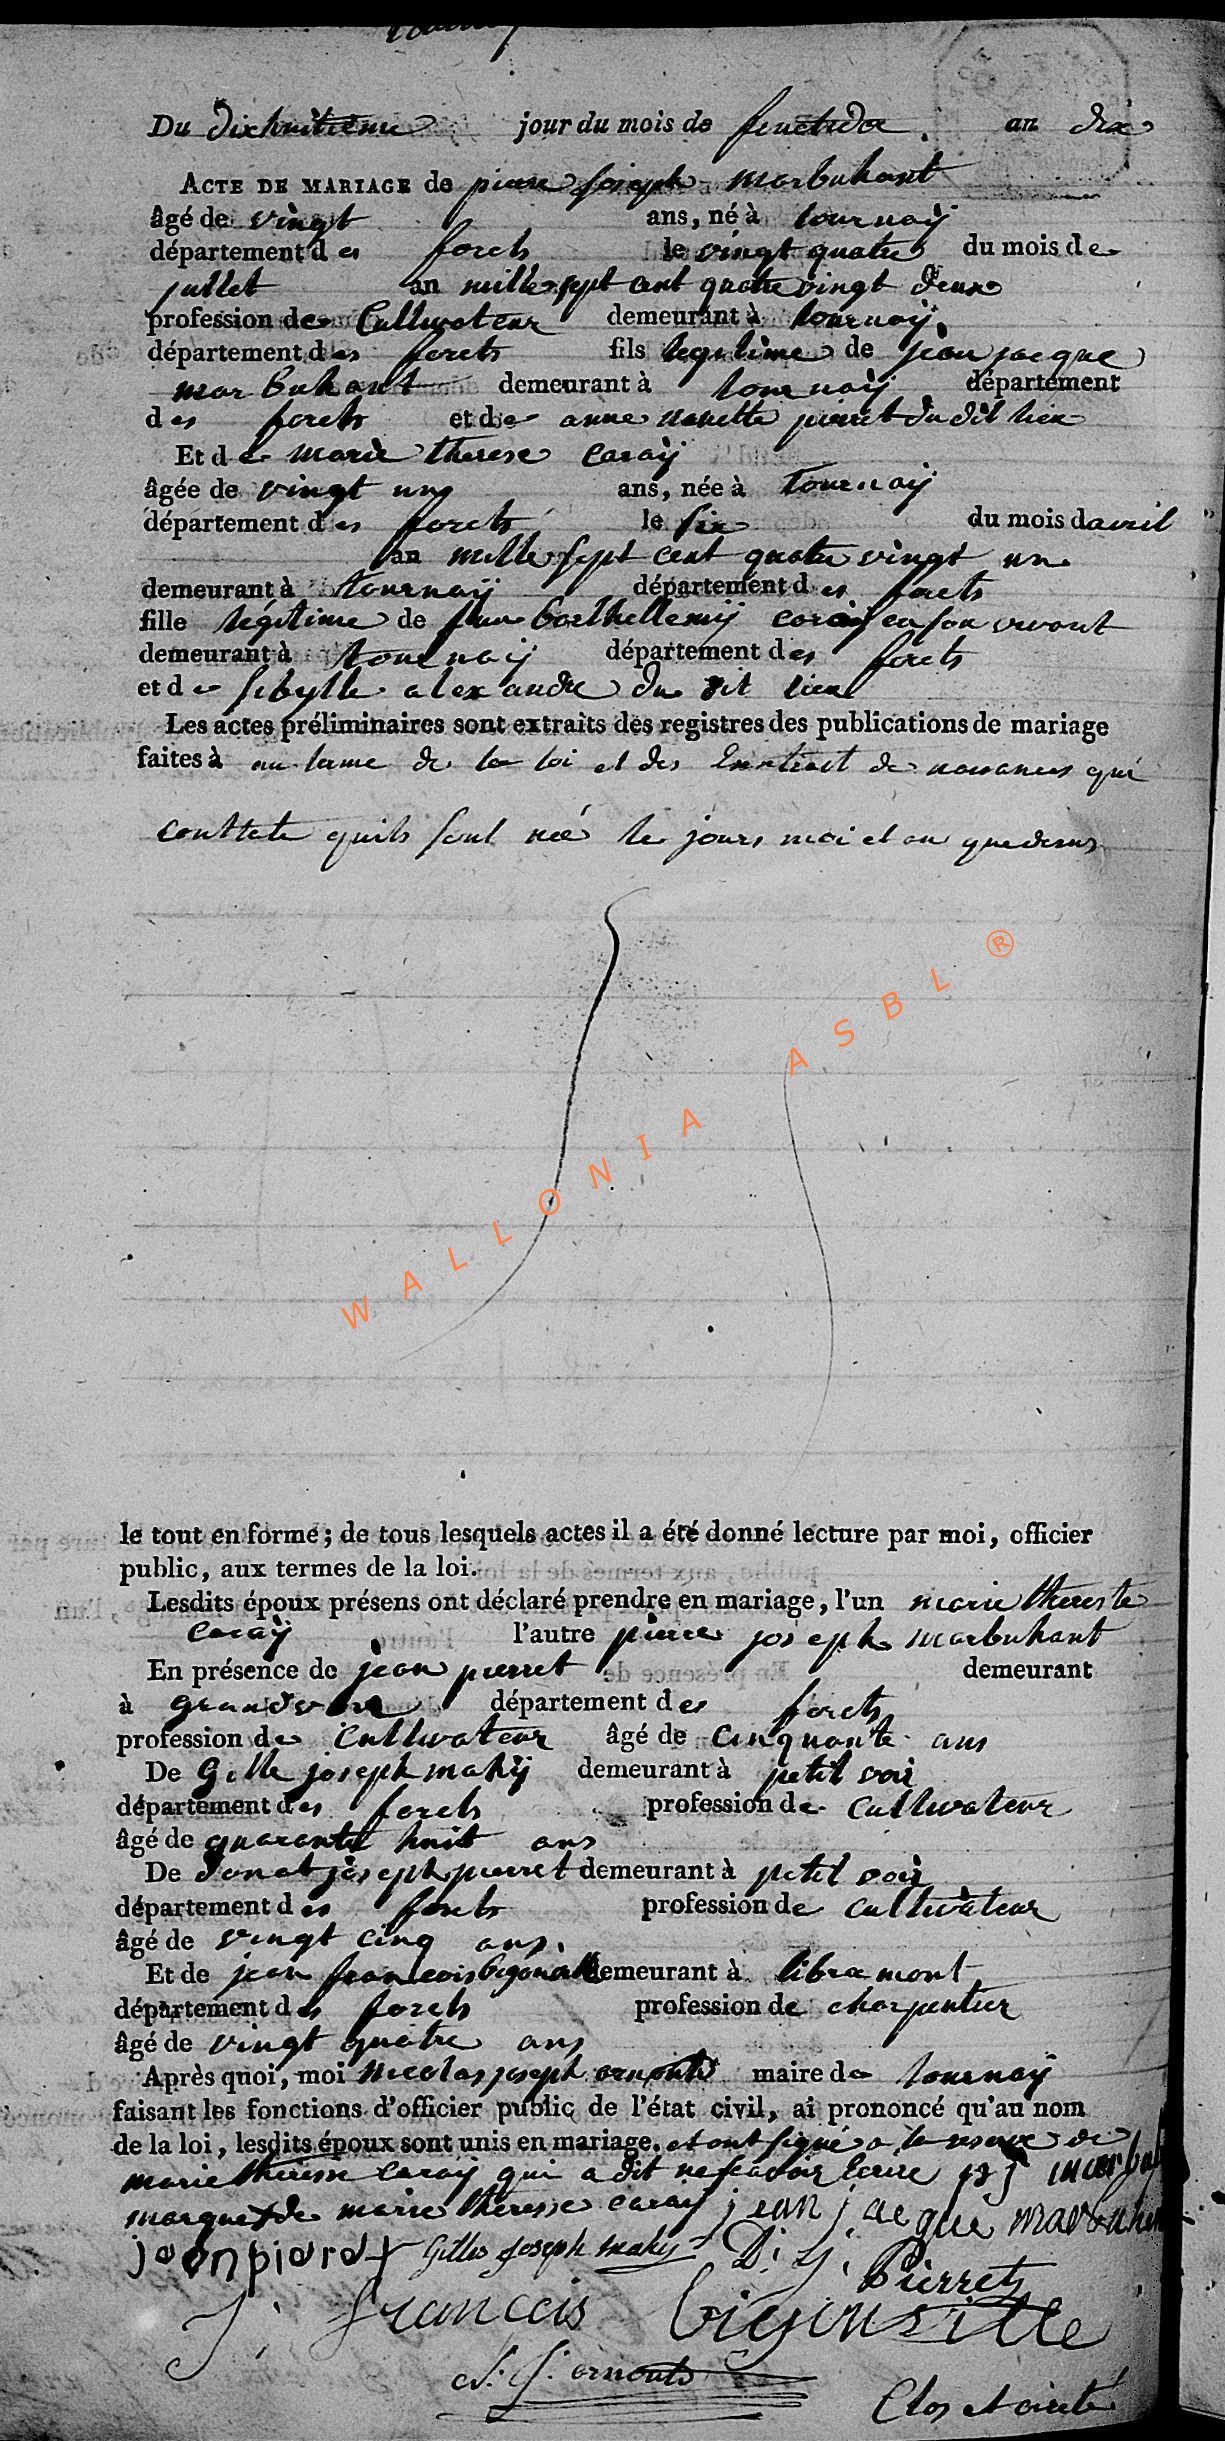 Du dixhuitieme jour du mois de fructidor an dix
ACTE DE MARIAGE de pierre joseph marbuhant
âgé de vingt ans, né à tournaÿ
département des forets le vingt quatre du mois de
juillet an mille sept cent quatre vingt deux
profession de Cultivateur demeurant à tournaÿ,
département des forets fils legitime de jean jacque
marbuhant demeurant à tournaÿ département
des forets et de anne nanette pierret du dit lieu
Et de marie therese caraÿ
âgée de vingt un ans, née à tournaÿ
département des forets le six du mois davril
an mille sept cent quatre vingt un
demeurant à tournaÿ département des forets
fille légitime de jean barthellemÿ caraÿ en son vivant
demeurant à tournaÿ département des forets
et de sibylle alexandre du dit lieu
Les actes préliminaires sont extraits des registres des publications de mariage
faites à au terme de la loi et des de qui
quils sont néé le jours moi et an que desus
WALLONIA ASBL ®
le tout en forme ; de tous lesquels actes il a été donné lecture par moi, officier
public, aux termes de la loi.
Lesdits époux présens ont déclaré prendre en mariage, l'un marie therese
caraÿ l'autre pierre joseph marbuhant
En présence de jean pierret demeurant
à grandvoir département des forets
profession de cultivateur âgé de cinquante ans
De Gille joseph mahÿ demeurant à petit voir
département des forets profession de cultivateur
âgé de quarante huit ans
De donat joseph pierret demeurant à petit voir
département des forets profession de cultivateur
âgé de vingt cinq ans,
Et de jean francois bigonville demeurant à libramont
département des forets profession de charpentier
âgé de vingt quatre ans
Après quoi, moi nicolas joseph arnould maire de tournaÿ
faisant les fonctions d'officier public de l'état civil, ai prononcé qu'au nom
de la loi, lesdits époux sont unis en mariage. et ont signé a la reserve de
marie therese caraÿ qui a dit ne scavoir Ecrire pj
marque de marie therese caraÿ jean jacque
jeanpieret Gilles joseph mahy D. J. Pierret
J. francois bigonville
N. J. arnould
Clos et arreté